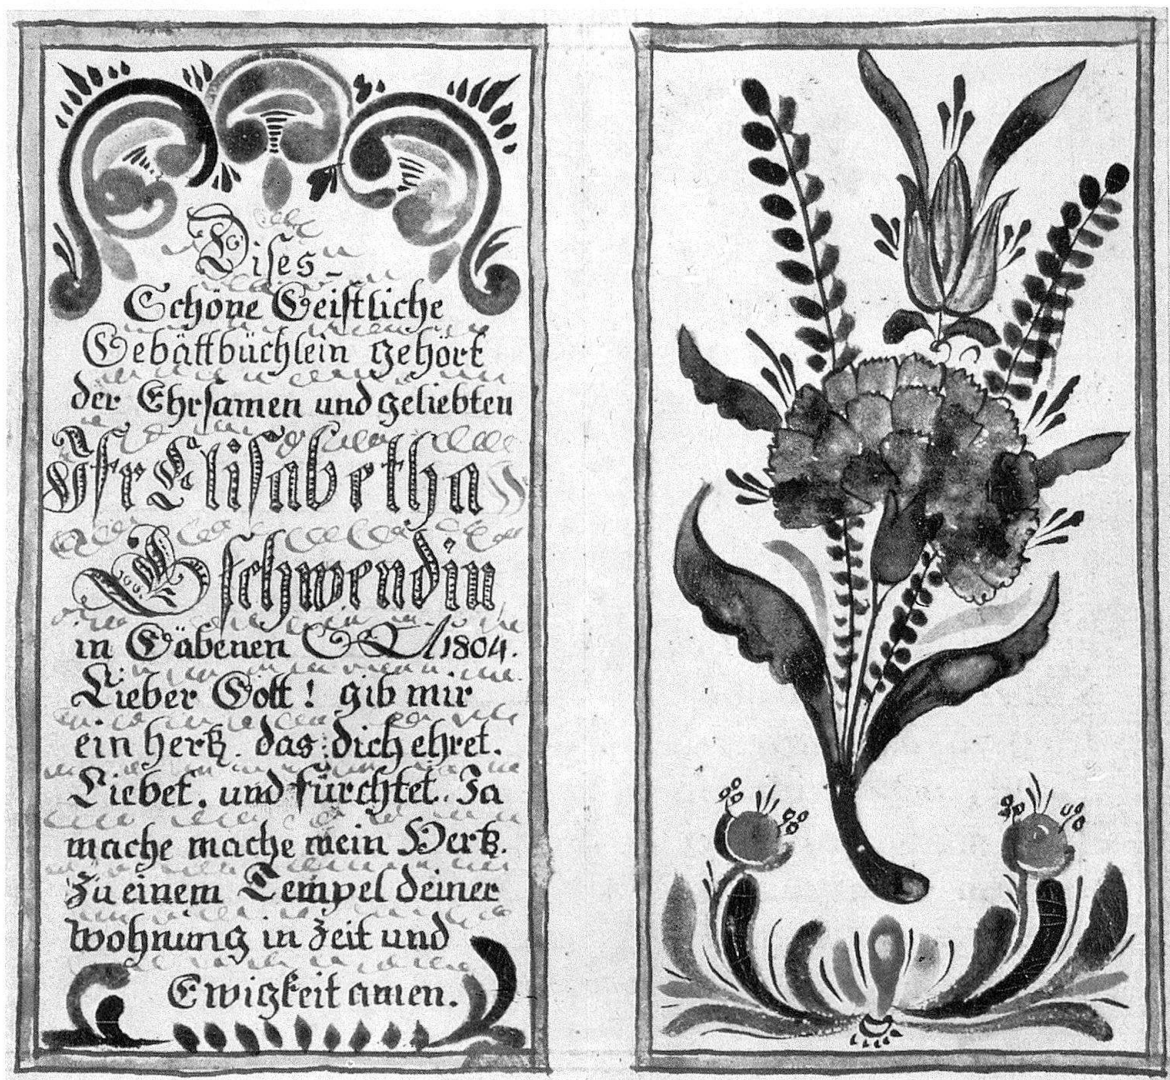 Dises
Schöne Geistliche
Gebättbüchlein gehört
der Ehrsamen und geliebten
Jfr Elisabetha
Gschwendin
in Gäbenen 1804.
Lieber Gott! gib mir
ein hertz. das dich ehret.
Liebet. und fürchtet. Ja
mache mache mein Hertz.
Zu einem Tempel deiner
wohnung in Zeit und
Ewigkeit amen.